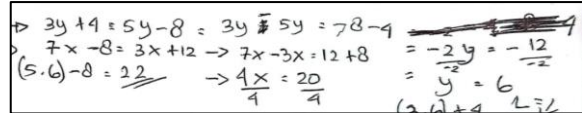 → 3y + 4 = 5y - 8 = 3y - 5y = -8 - 4
7x - 8 = 3x + 12 → 7x - 3x = 12 + 8 = -2y/-2 = -12/-2
(5.6) - 8 = 22 → 4x/4 = 20/4 = y = 6